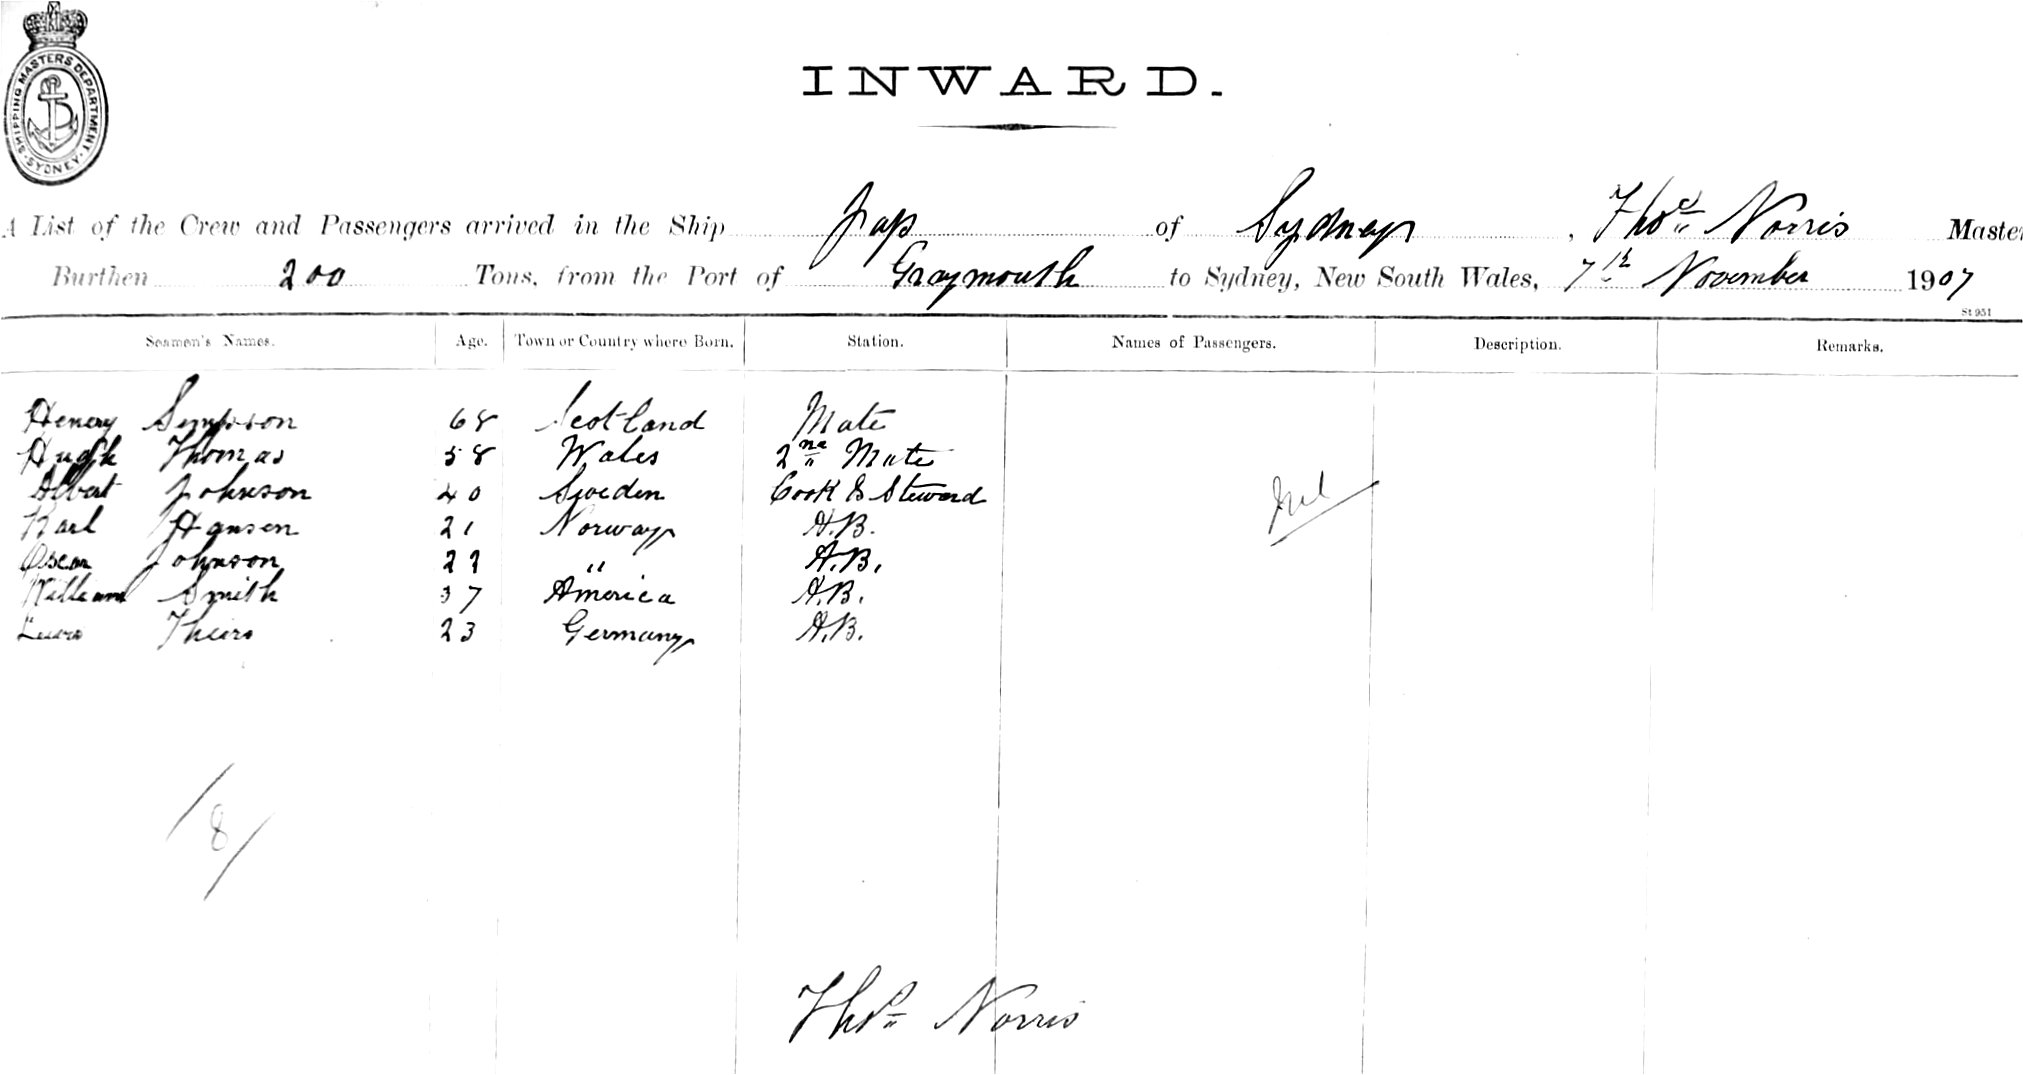 SHIPPING MASTERS DEPARTMENT · SYDNEY ·
INWARD.
A List of the Crew and Passengers arrived in the Ship Jap of Sydney, Thos Norris Master
Burthen 200 Tons, from the Port of Graymouth to Sydney, New South Wales, 7th November 1907
St 951
Seamen's Names. Age. Town or Country where Born. Station. Names of Passengers. Description. Remarks.
Henery Simpson 68 Scotland Mate
Hugh Thomas 58 Wales 2nd Mate
Albert Johnson 40 Sweden Cook & Steward
Nil
Karl Hansen 21 Norway A.B.
Oscar Johnson 22 " A.B.
William Smith 37 America A.B.
Lewis Theirs 23 Germany A.B.
/8/
Thos Norris